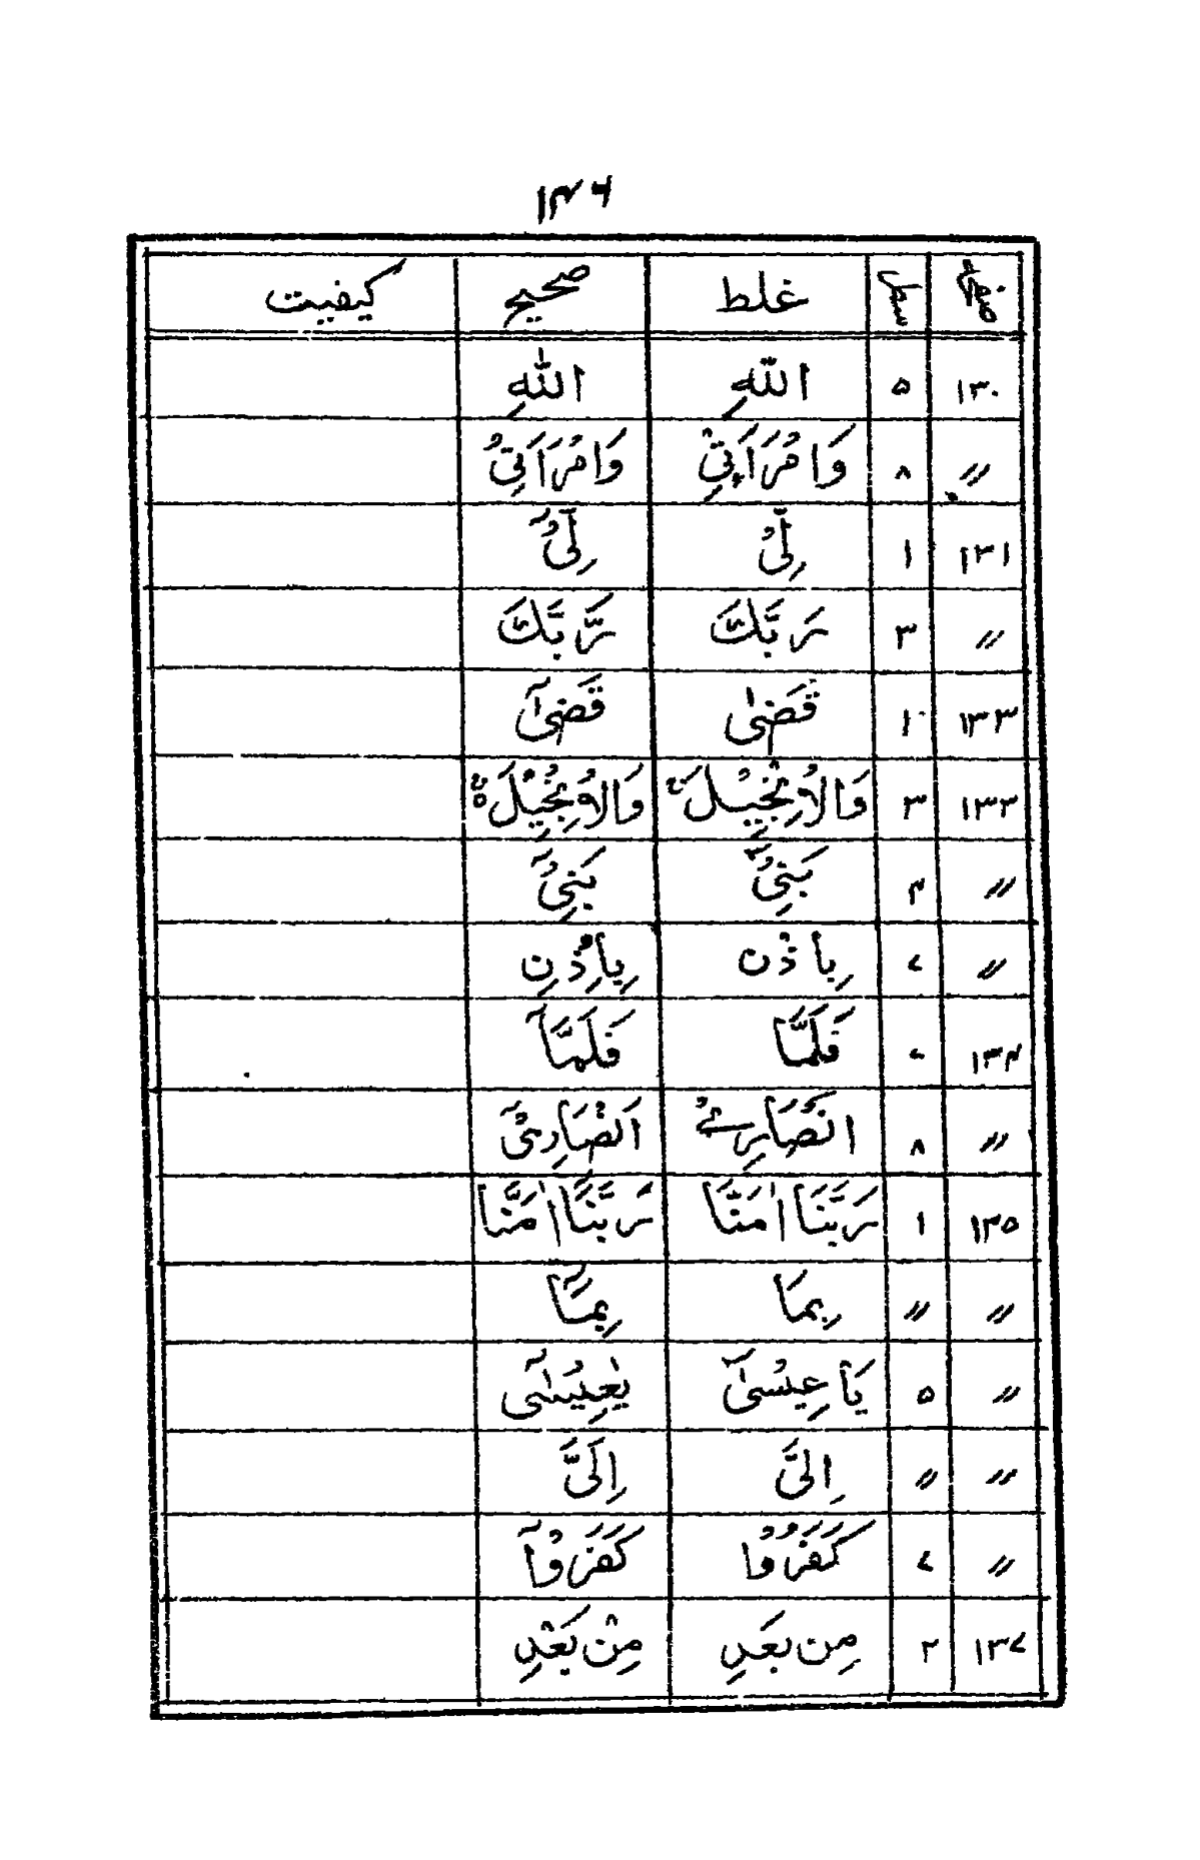 ۱۴۶
صفحہ سطر غلط صحیح کیفیت
۱۳۰ ۵ اللّٰہِ اللّٰہِ
〃 ۸ وَامْرَاَتِیْ وَامْرَاَتِیْ
۱۳۱ ۱ لِیْ لِیْٓ
〃 ۳ رَبَّكَ رَّبَّكَ
۱۳۳ ۱ قَضٰی قَضٰىٓ
۱۳۳ ۳ وَالْاِنْجِیْلَ وَالْاِنْجِیْلَ
〃 ۴ بَنِیْٓ بَنِیْٓ
〃 ۷ بِاذْن بِاِذْنِ
۱۳۴ فَلَمَّا فَلَمَّآ
〃 ۸ انْصَارِیْ اَنْصَارِیْٓ
۱۳۵ ۱ رَبَّنَا اٰمَنَّا رَبَّنَآ اٰمَنَّا
〃 〃 بِمَا بِمَآ
〃 ۵ یَا عِیْسٰیٓ یٰعِیْسٰٓی
〃 〃 اِلیَّ اِلَیَّ
〃 ۷ كَفَرُوْا كَفَرُوْٓا
۱۳۷ ۲ مِن بَعَدِ مِنْ بَعْدِ